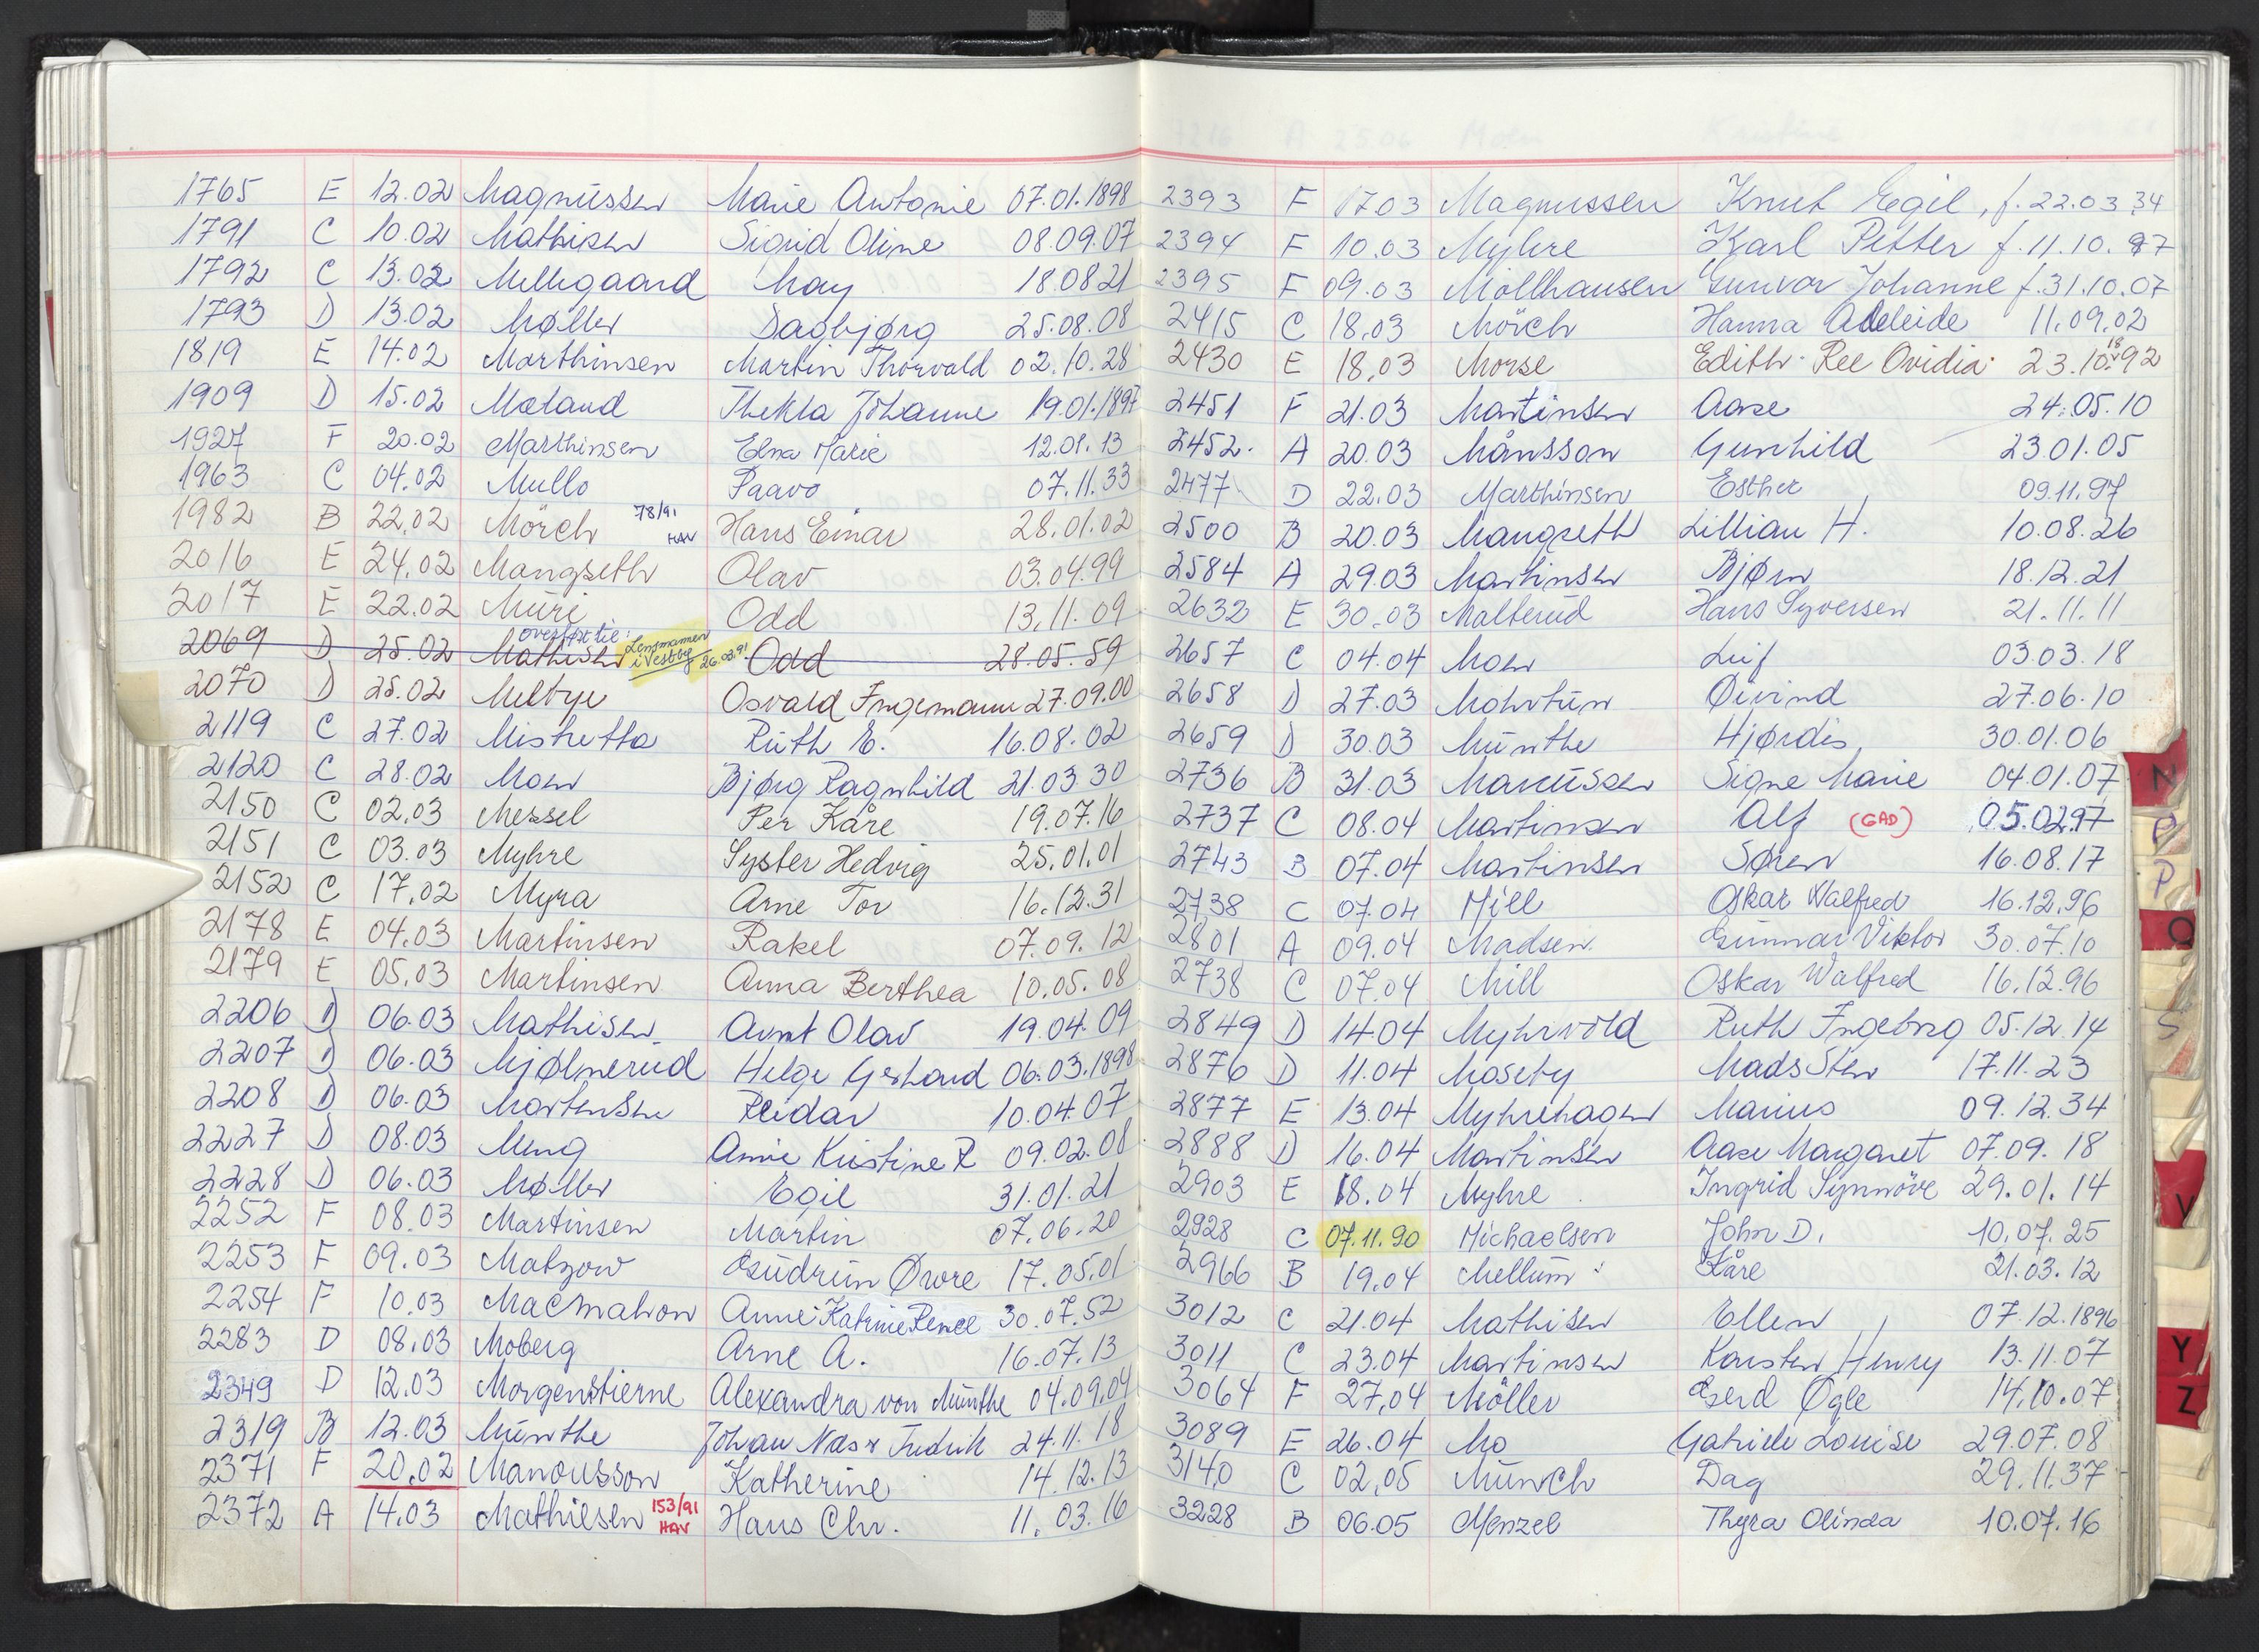 1765 E 12.02 Magnussen Marie Antonie 07.01.1898
1791 C 10.02 Mathisen Sigrid Oline 08.09.07
1792 C 13.02 Mellegaard May 18.08 21
1793 D 13.02 Møller Dagbjørg 25.08.08
1819 E 14.02 Marthinsen Martin Thorvald 02.10.28
1909 D 15.02 Mæland Thekla Johanne 19.01.1897
1927 F 20.02 Marthinsen Elna Marie 12.01.13
1963 C 04.02 Mullo Paavo 07.11.33
1982 B 22.02 Mörch 78/91 HAV Hans Einar 28.01.02
2016 E 24.02 Mangseth Olav 03.04.99
2017 E 22.02 Muri Odd 13.11.09
2069 D 25.02 Mathisen overført til: Lensmannen i Vestby 26.03.91 Odd 28.05.59
2070 D 25.02 Melbye Osvald Ingemann 27.09.00
2119 C 27.02 Mistretta Ruth E. 16.08.02
2120 C 28.02 Moen Bjørg Ragnhild 21.03 30
2150 C 02.03 Messel Per Kåre 19.07.16
2151 C 03.03 Myhre Syster Hedvig 25.01.01
2152 C 17.02 Myra Arne Tor 16.12.31
2178 E 04.03 Martinsen Rakel 07.09.12
2179 E 05.03 Martinsen Anna Berthea 10.05.08
2206 D 06.03 Mathisen Arnt Olav 19.04.09
2207 D 06.03 Mjølnerud Helge Gerhard 06.03.1898
2208 D 06.03 Martensen Reidar 10.04.07
2227 D 08.03 Meng Annie Kristine R 09.02.08
2228 D 06.03 Møller Egil 31.01.21
2252 F 08.03 Martinsen Martin 07.06.20
2253 F 09.03 Matzow Gudrun Øvre 17.05.01
2254 F 10.03 MacMahon Anne Katrine Renee 30.07.52
2283 D 08.03 Moberg Arne A. 16.07.13
2349 D 12.03 Morgenstierne Alexandra von Munthe 04.09.04
2319 B 12.03 Munthe Johan Næsr Fredrik 24.11.18
2371 F 20.02 Manousson Katherine 14.12.13
2372 A 14.03 Mathiesen 153/91 HAV Hans Chr. 11.03.16
2393 F 17.03 Magnussen Knut Egil, f. 22.03 34
2394 F 10.03 Myhre Karl Petter f. 11.10.97
2395 F 09.03 Möllhausen Gunvor Johanne f. 31.10.07
2415 C 18.03 Mörch Hanna Adeleide 11.09.02
2430 E 18.03 Morse Edith Ree Ovidia 23.10.1892
2451 F 21.03 Martinsen Aase 24.05.10
2452 A 20.03 Månsson Gunhild 23.01.05
2477 D 22.03 Marthinsen Esther 09.11.97
2500 B 20.03 Mangseth Lillian H. 10.08.26
2584 A 29.03 Martinsen Bjørn 18.12.21
2632 E 30.03 Malterud Hans Syversen 21.11.11
2657 C 04.04 Moen Leif 03.03.18
2658 D 27.03 Mohrtun Øivind 27.06.10
2659 D 30.03 Munthe Hjørdis 30.01.06
2736 B 31.03 Marcussen Signe Marie 04.01.07
2737 C 08.04 Martinsen Alf (GAD) 05.02.97
2743 B 07.04 Martinsen Søren 16.08.17
2738 C 07.04 Mill Oskar Walfred 16.12.96
2801 A 09.04 Madsen Gunnar Viktor 30.07.10
2738 C 07.04 Mill Oskar Walfred 16.12.96
2849 D 14.04 Myhrvold Ruth Ingeborg 05.12.14
2876 D 11.04 Moseby Mads Sten 17.11.23
2877 E 13.04 Myhrehagen Marius 09.12.34
2888 D 16.04 Martinsen Aase Margaret 07.09.18
2903 E 18.04 Myhre Ingrid Synnöve 29.01.14
2928 C 07.11.90 Michaelsen John D. 10.07.25
2966 B 19.04 Mellum Kåre 21.03.12
3012 C 21.04 Mathisen Ellen 07.12.1896
3011 C 23.04 Martinsen Karsten Henry 13.11.07
3064 F 27.04 Möller Gerd Ogle 14.10.07
3089 E 26.04 Mo Gabriele Louise 29.07.08
3140 C 02.05 Münch Dag 29.11.37
3228 B 06.05 Menzel Thyra Olinda 10.07.16
N
P
P
Q
S
V
Y
Z